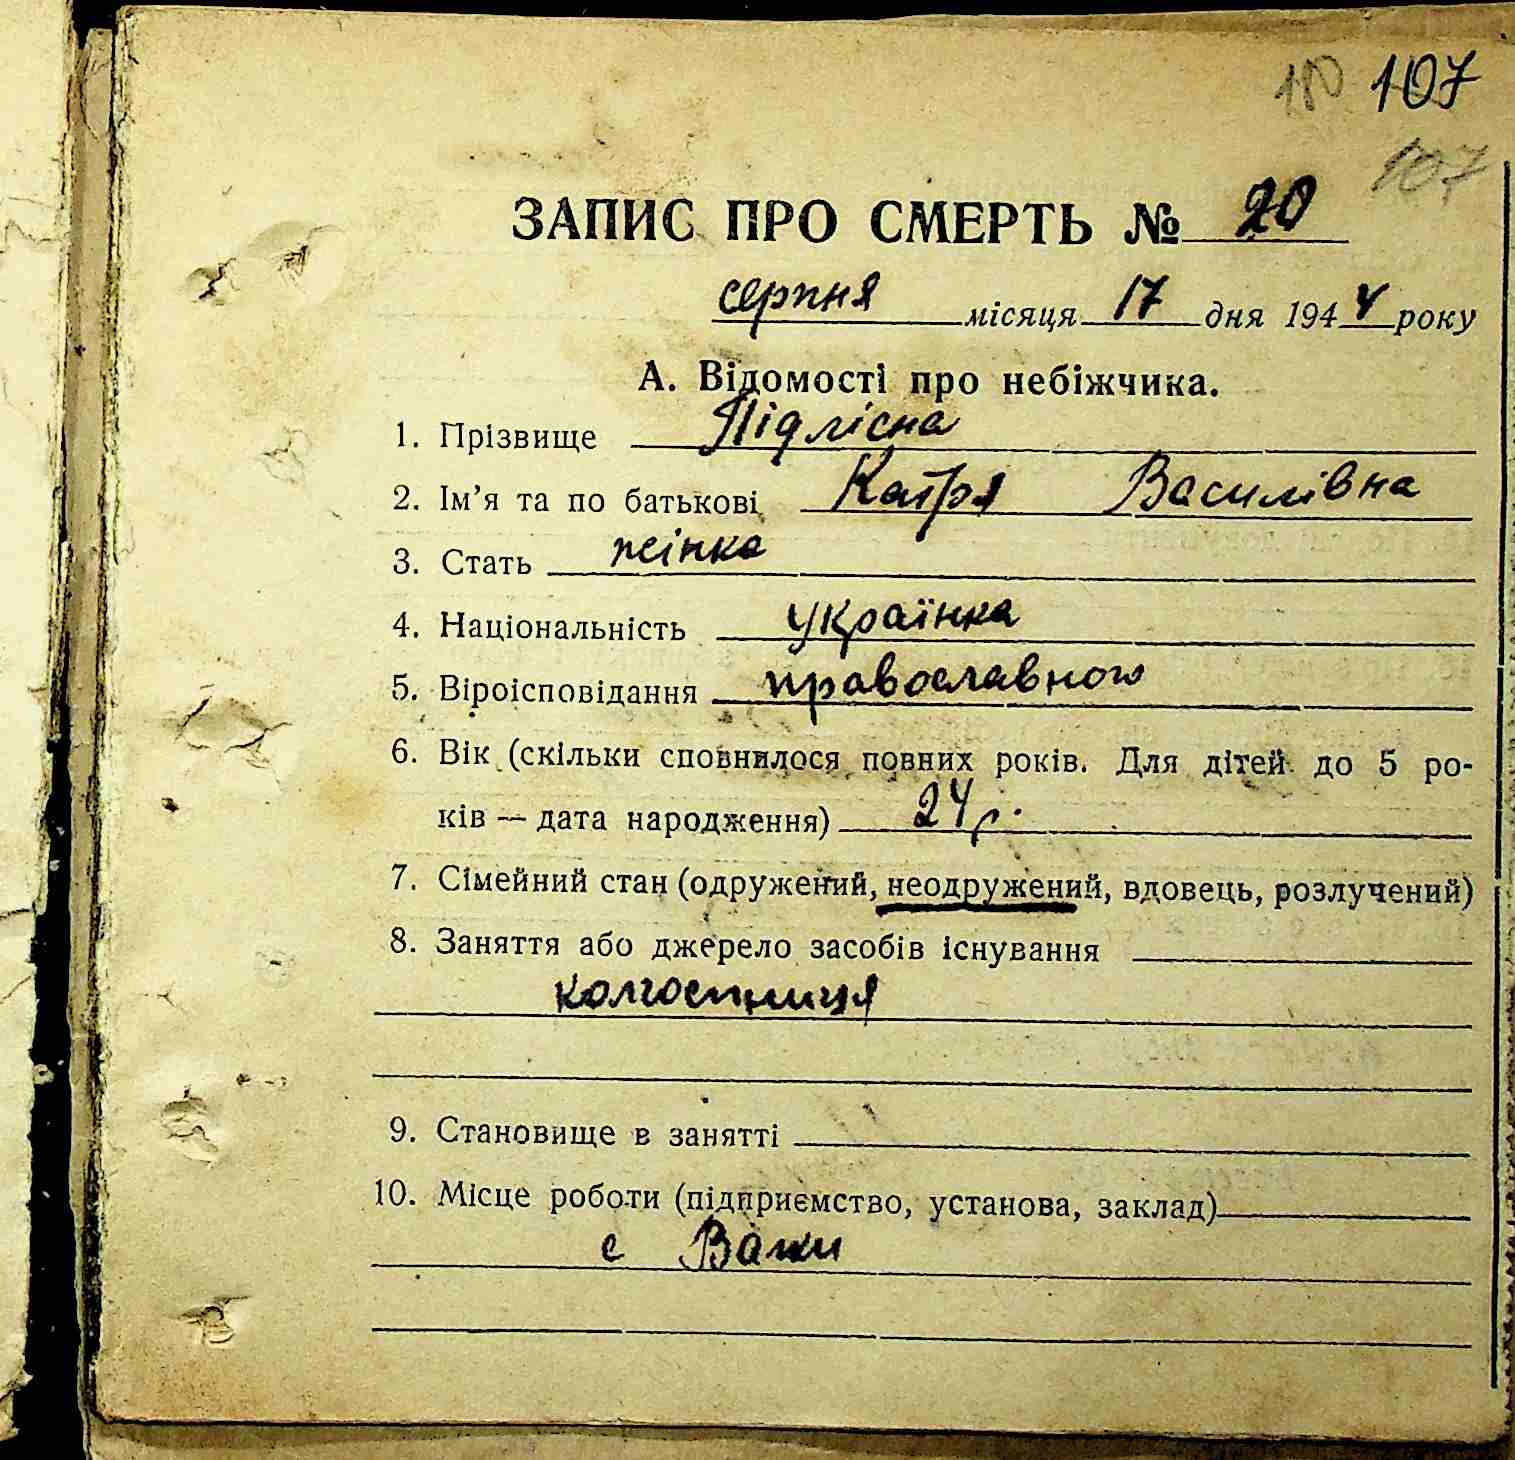 180 107
107
ЗАПИС ПРО СМЕРТЬ № 20
серпня місяця 17 дня 1944 року
А. Відомості про небіжчика.
1. Прізвище Підлісна
2. Ім’я та по батькові Катря Василівна
3. Стать жінка
4. Національність українка
5. Віроісповідання православного
6. Вік (скільки сповнилося повних років. Для дітей до 5 ро-
ків — дата народження) 24 р.
7. Сімейний стан (одружений, неодружений, вдовець, розлучений)
8. Заняття або джерело засобів існування
колгоспниця
9. Становище в занятті
10. Місце роботи (підприємство, установа, заклад)
с